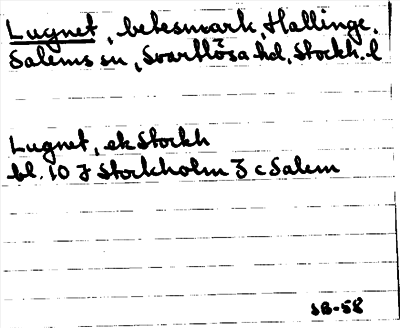 Lugnet, betesmark, Hallinge,
Salems sn, Svartlösa hd, Stockh. l
Lugnet, ek Stockh
bl. 10 I Stockholm 3 c Salem
SB-58